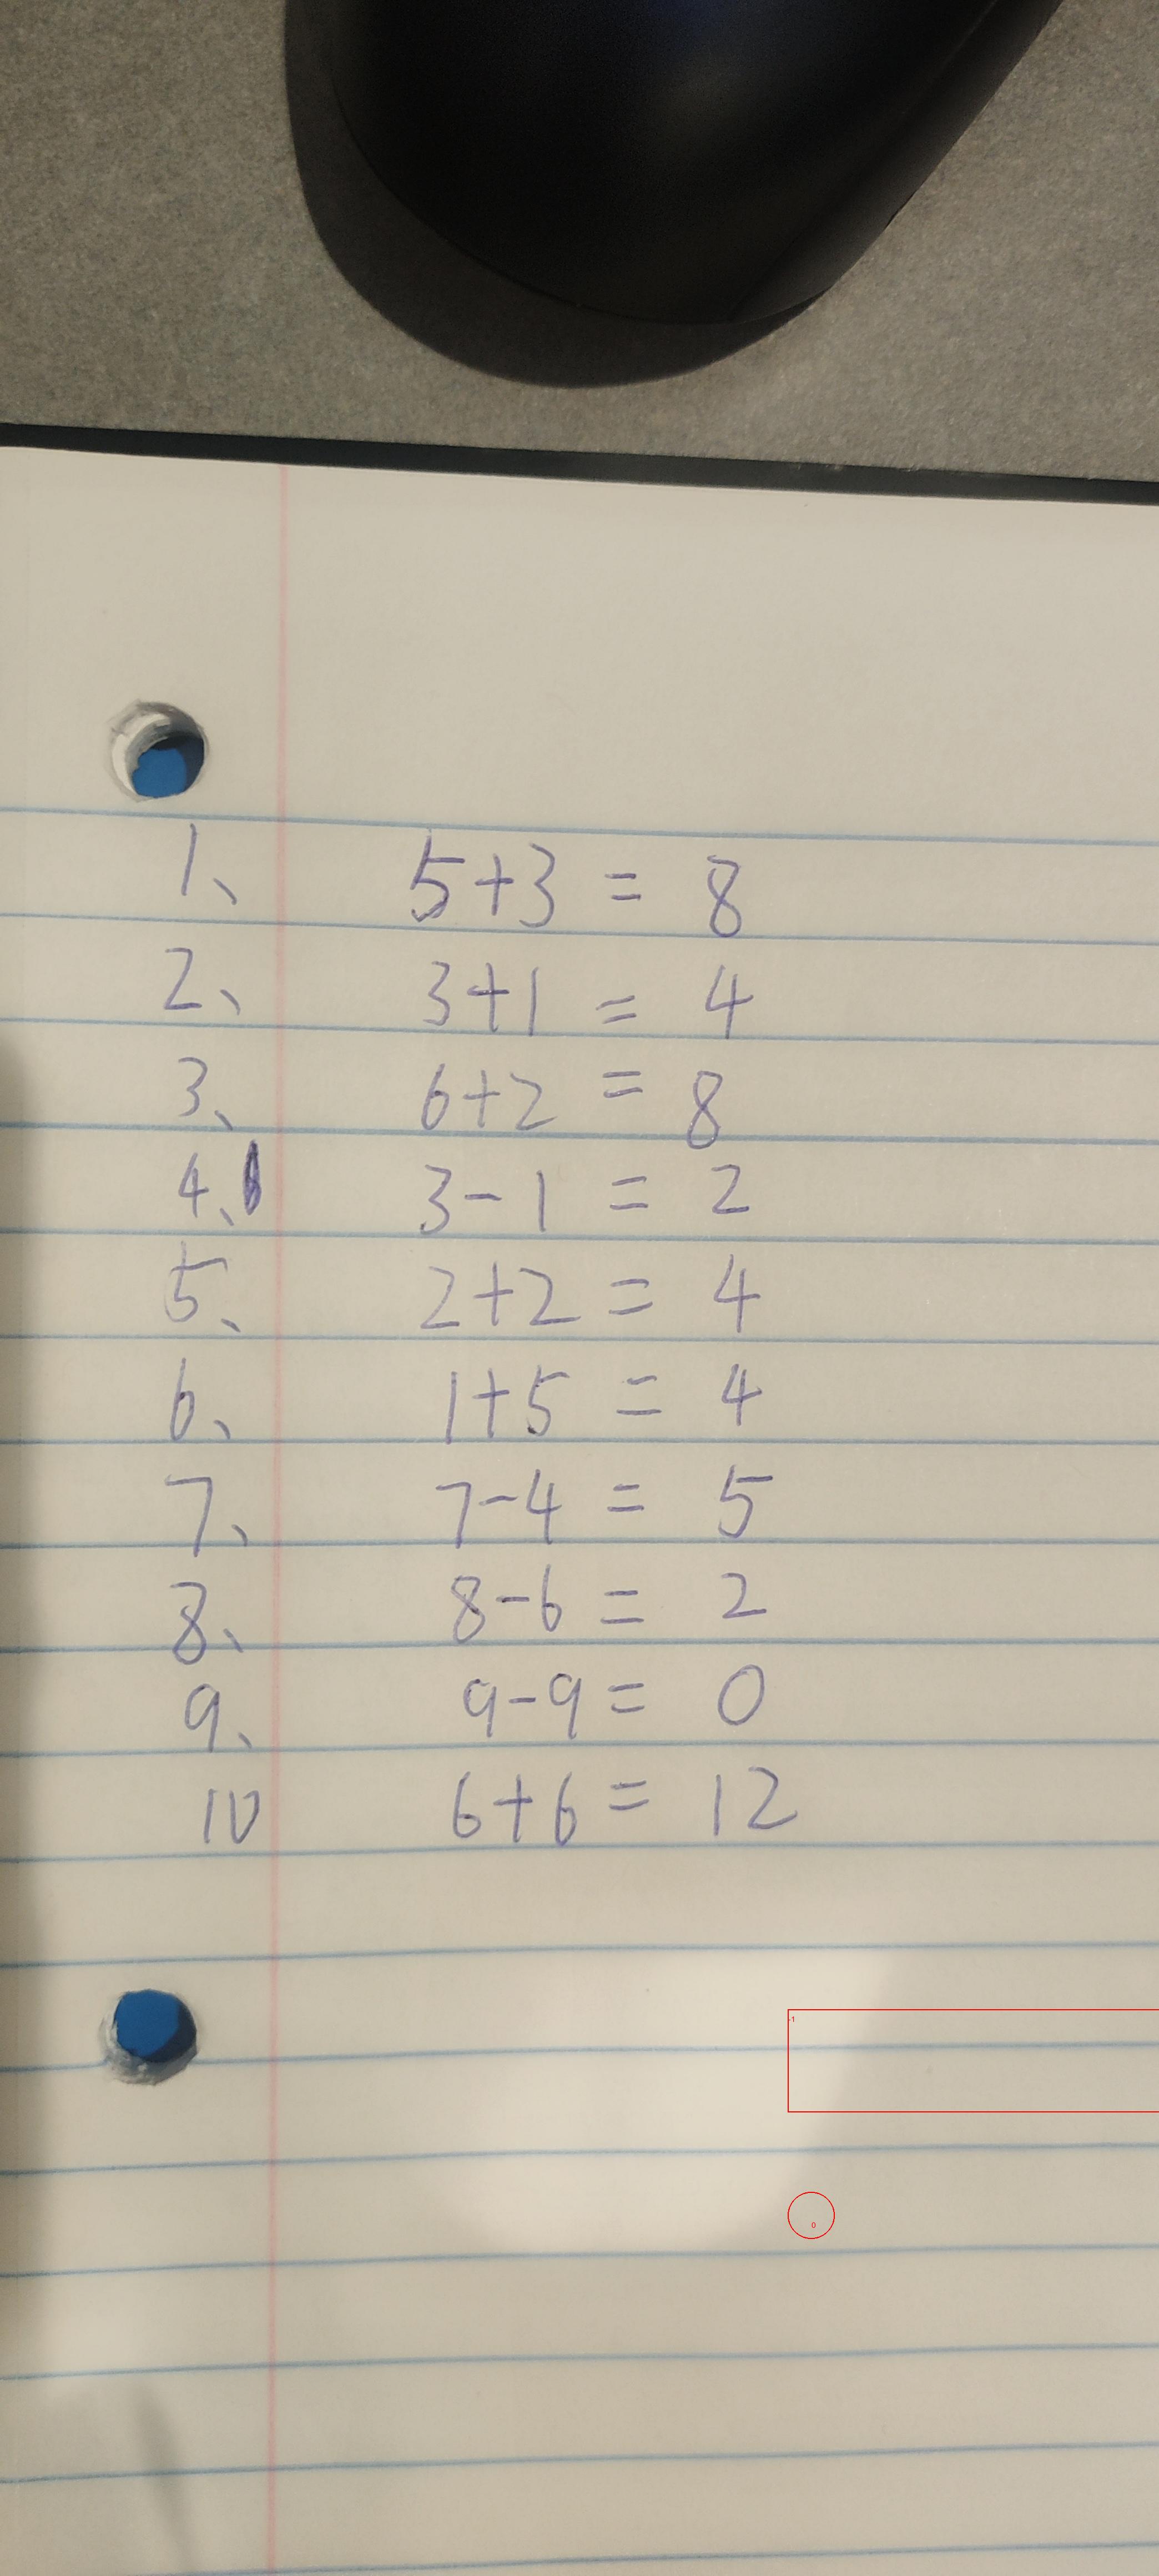 1、 5+3 = 8
2、 3+1 = 4
3、 6+2 = 8
4、 3-1 = 2
5、 2+2 = 4
6、 1+5 = 4
7、 7-4 = 5
8、 8-6 = 2
9、 9-9 = 0
10 6+6 = 12
-1
0